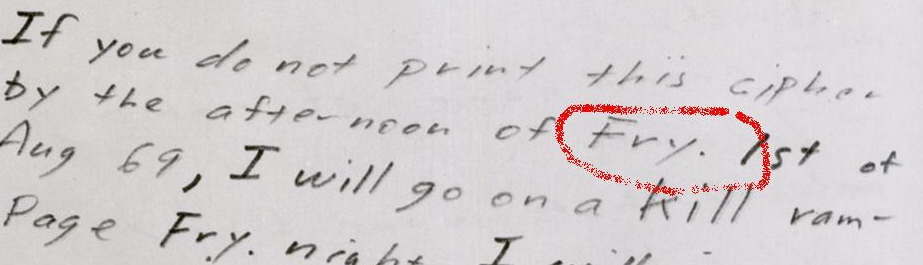 If you do not print this cipher
by the afternoon of Fry. 1st of
Aug 69, I will go on a kill ram-
Page Fry. night. I will